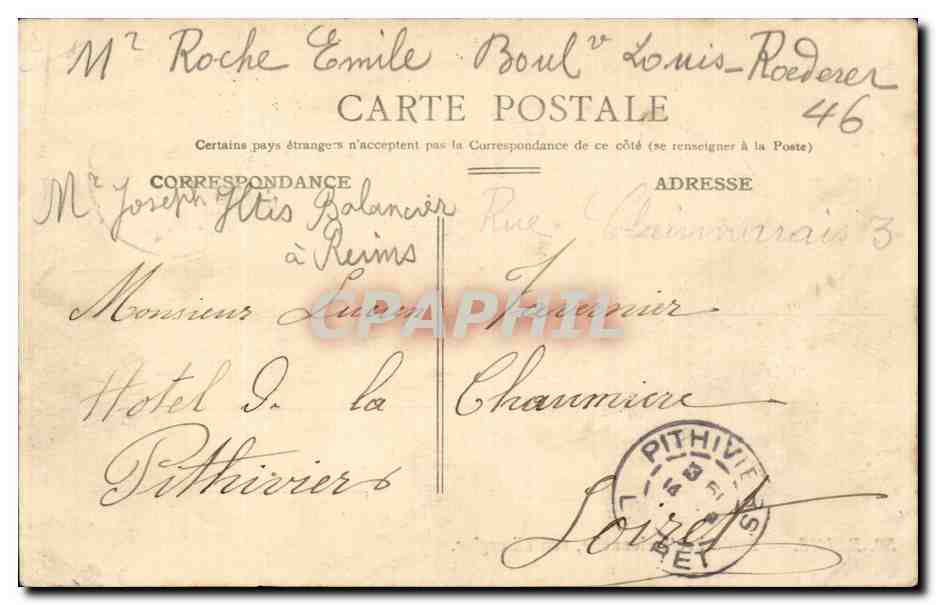 Mr Roche Emile Boulv Louis-Roederer
46
CARTE POSTALE
Certains pays étrangers n'acceptent pas la Correspondance de ce côté (se renseigner à la Poste)
CORRESPONDANCE
ADRESSE
Mr Joseph Iltis Balancier
à Reims
Rue 3
Monsieur Lucien Tavernier
Hotel De la Chaumiere
Pithiviers
Loiret
PITHIVIERS
LOIRET
CPAPHIL